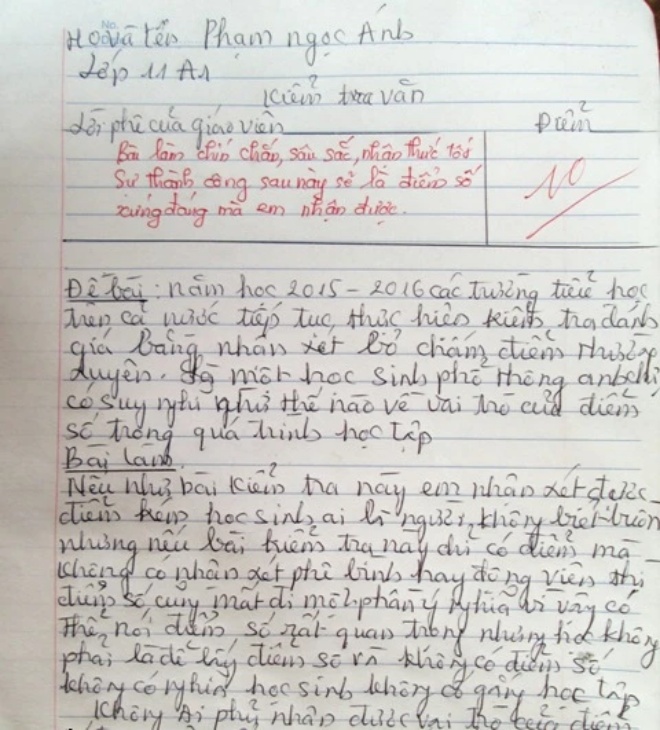 Họ và tên Phạm ngọc Ánh
Lớp 11 A1
Kiểm tra văn
Lời phê của giáo viên
Điểm
Bài làm chín chắn, sâu sắc, nhận thức tốt
Sự thành công sau này sẽ là điểm số
xứng đáng mà em nhận được.
10
Đề bài: năm học 2015 - 2016 các trường tiểu học
trên cả nước tiếp tục thực hiện kiểm tra đánh
giá bằng nhận xét bỏ chấm điểm thường
xuyên. Là một học sinh phổ thông anh chị
có suy nghĩ như thế nào về vai trò của điểm
số trong quá trình học tập
Bài làm
Nếu như bài kiểm tra này em nhận xét được
điểm kém học sinh ai là người không biết buồn
nhưng nếu bài kiểm tra này chỉ có điểm mà
không có nhận xét phê bình hay động viên thì
điểm số cũng mất đi một phần ý nghĩa vì vậy có
thể nói điểm số rất quan trọng nhưng học không
phải là để lấy điểm số và không có điểm số
không có nghĩa học sinh không cố gắng học tập
Không Ai phủ nhận được vai trò của điểm